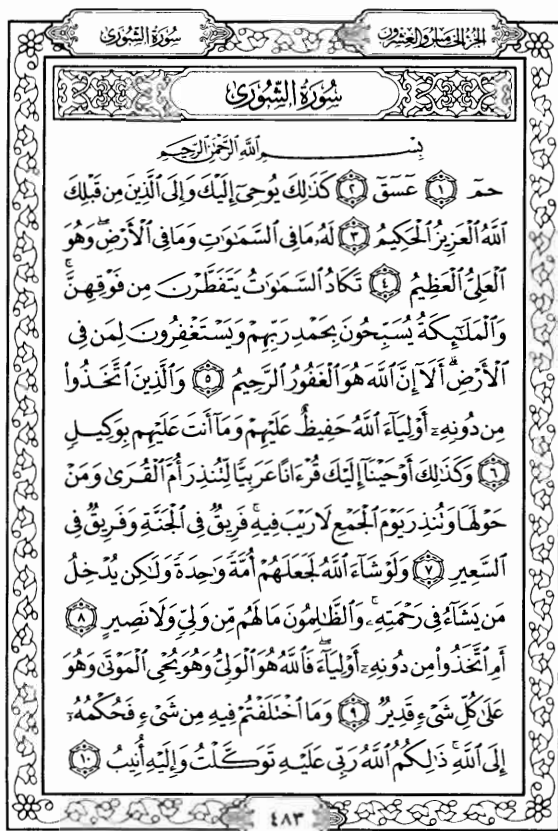 سُورَةُ الشُّورَىٰ
الجُزْءُ الخَامِسُ وَالعِشْرُونَ
سُورَةُ الشُّورَىٰ
بِسْمِ اللَّهِ الرَّحْمَٰنِ الرَّحِيمِ
حمٓ ١ عٓسٓقٓ ٢ كَذَٰلِكَ يُوحِىٓ إِلَيْكَ وَإِلَى الَّذِينَ مِن قَبْلِكَ
اللَّهُ الْعَزِيزُ الْحَكِيمُ ٣ لَهُۥ مَا فِى السَّمَٰوَٰتِ وَمَا فِى الْأَرْضِۖ وَهُوَ
الْعَلِىُّ الْعَظِيمُ ٤ تَكَادُ السَّمَٰوَٰتُ يَتَفَطَّرْنَ مِن فَوْقِهِنَّۚ
وَالْمَلَٰٓئِكَةُ يُسَبِّحُونَ بِحَمْدِ رَبِّهِمْ وَيَسْتَغْفِرُونَ لِمَن فِى
الْأَرْضِۗ أَلَآ إِنَّ اللَّهَ هُوَ الْغَفُورُ الرَّحِيمُ ٥ وَالَّذِينَ اتَّخَذُوا۟
مِن دُونِهِۦٓ أَوْلِيَآءَ اللَّهُ حَفِيظٌ عَلَيْهِمْ وَمَآ أَنتَ عَلَيْهِم بِوَكِيلٍ
٦ وَكَذَٰلِكَ أَوْحَيْنَآ إِلَيْكَ قُرْءَانًا عَرَبِيًّا لِّتُنذِرَ أُمَّ الْقُرَىٰ وَمَنْ
حَوْلَهَا وَتُنذِرَ يَوْمَ الْجَمْعِ لَا رَيْبَ فِيهِۚ فَرِيقٌ فِى الْجَنَّةِ وَفَرِيقٌ فِى
السَّعِيرِ ٧ وَلَوْ شَآءَ اللَّهُ لَجَعَلَهُمْ أُمَّةً وَٰحِدَةً وَلَٰكِن يُدْخِلُ
مَن يَشَآءُ فِى رَحْمَتِهِۦۚ وَالظَّٰلِمُونَ مَا لَهُم مِّن وَلِىٍّ وَلَا نَصِيرٍ ٨
أَمِ اتَّخَذُوا۟ مِن دُونِهِۦٓ أَوْلِيَآءَۖ فَاللَّهُ هُوَ الْوَلِىُّ وَهُوَ يُحْىِ الْمَوْتَىٰ وَهُوَ
عَلَىٰ كُلِّ شَىْءٍ قَدِيرٌ ٩ وَمَا اخْتَلَفْتُمْ فِيهِ مِن شَىْءٍ فَحُكْمُهُۥٓ
إِلَى اللَّهِۚ ذَٰلِكُمُ اللَّهُ رَبِّى عَلَيْهِ تَوَكَّلْتُ وَإِلَيْهِ أُنِيبُ ١٠
٤٨٣